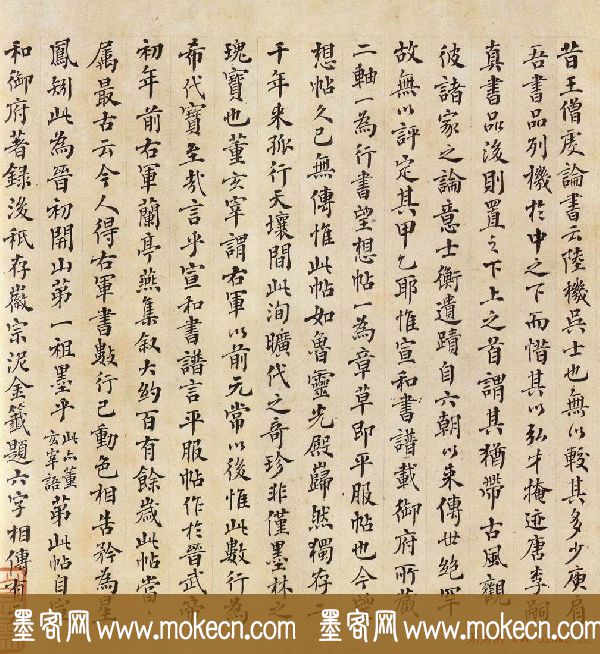 昔王僧虔論書云陸機吳士也無以較其多少庾肩
吾書品列機於中之下而惜其以弘才掩迹唐李嗣
真書品後則置之下上之首謂其猶帶古風觀
彼諸家之論意士衡遺蹟自六朝以來傳世絕罕
故無以評定其甲乙耶惟宣和書譜載御府所藏
二軸一為行書望想帖一為章草即平服帖也今望
想帖久已無傳惟此帖如魯靈光殿巋然獨存二
千年來孤行天壤間此洵曠代之奇珍非僅墨林之
瑰寶也董玄宰謂右軍以前元常以後惟此數行為
希代寶至哉言乎宣和書譜言平服帖作於晉武帝
初年前右軍蘭亭燕集敘大約百有餘歲此帖當
屬最古云今人得右軍書數行已動色相告矜為星
鳳矧此為晉初開山第一祖墨乎此亦董玄宰語第此帖自宣
和御府著錄後祇存徽宗泥金籤題六字相傳有
墨客网 www.mokecn.com 墨客网 www.mokecn.com